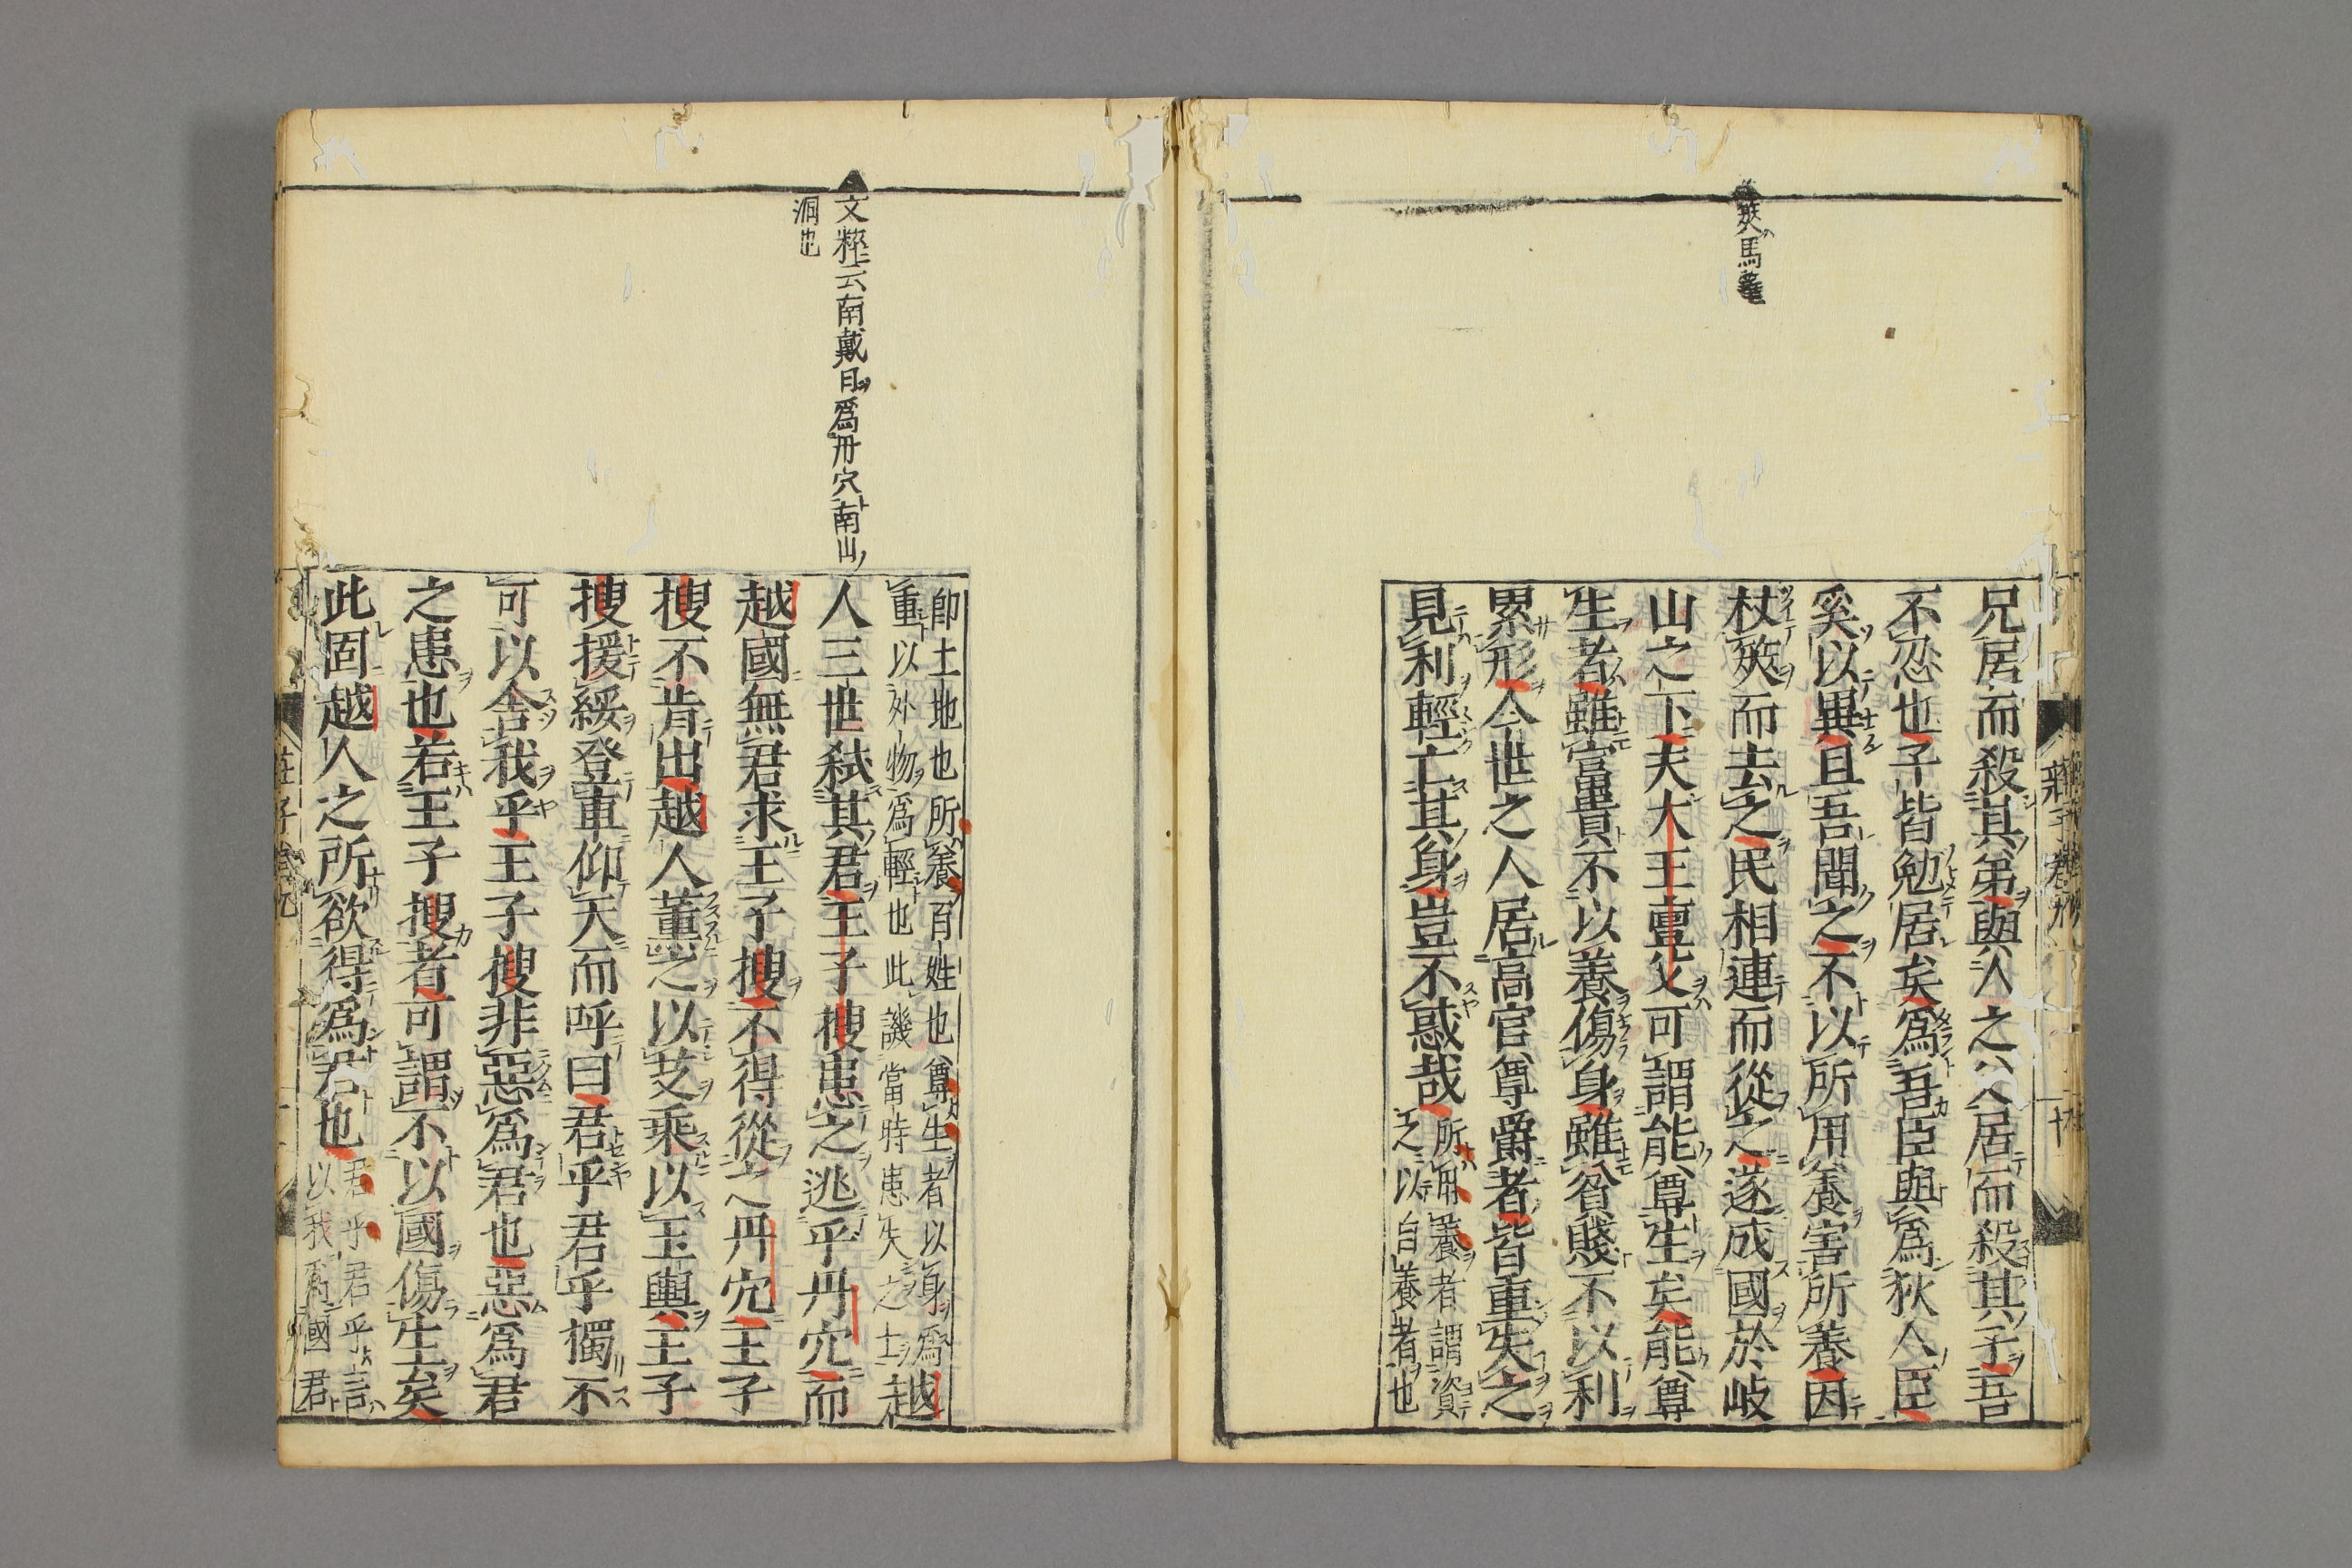 筴馬
兄居而殺其弟與人之父居而殺其子吾
不忍也子皆勉居矣爲吾臣與爲狄人臣
奚以異且吾聞之不以所用養害所養因
杖筴而去之民相連而從之遂成國於岐
山之下夫大王亶父可謂能尊生矣能尊
生者雖富貴不以養傷身雖貧賤不以利
累形今世之人居高官尊爵者皆重失之
見利輕亡其身豈不惑哉所用養者謂資
之以自養者也
文粹云南戴日爲丹穴南山
洞也
卽土地也所養百姓也尊生者以身爲
重以外物爲輕也此譏當時患失之士越
人三世弑其君王子搜患之逃乎丹穴而
越國無君求王子搜不得從之丹穴王子
搜不肯出越人薰之以艾乘以王輿王子
搜援綏登車仰天而呼曰君乎君乎獨不
可以舍我乎王子搜非惡爲君也惡爲君
之患也若王子搜者可謂不以國傷生矣
此固越人之所欲得爲君也君乎君乎言
以我爲國君